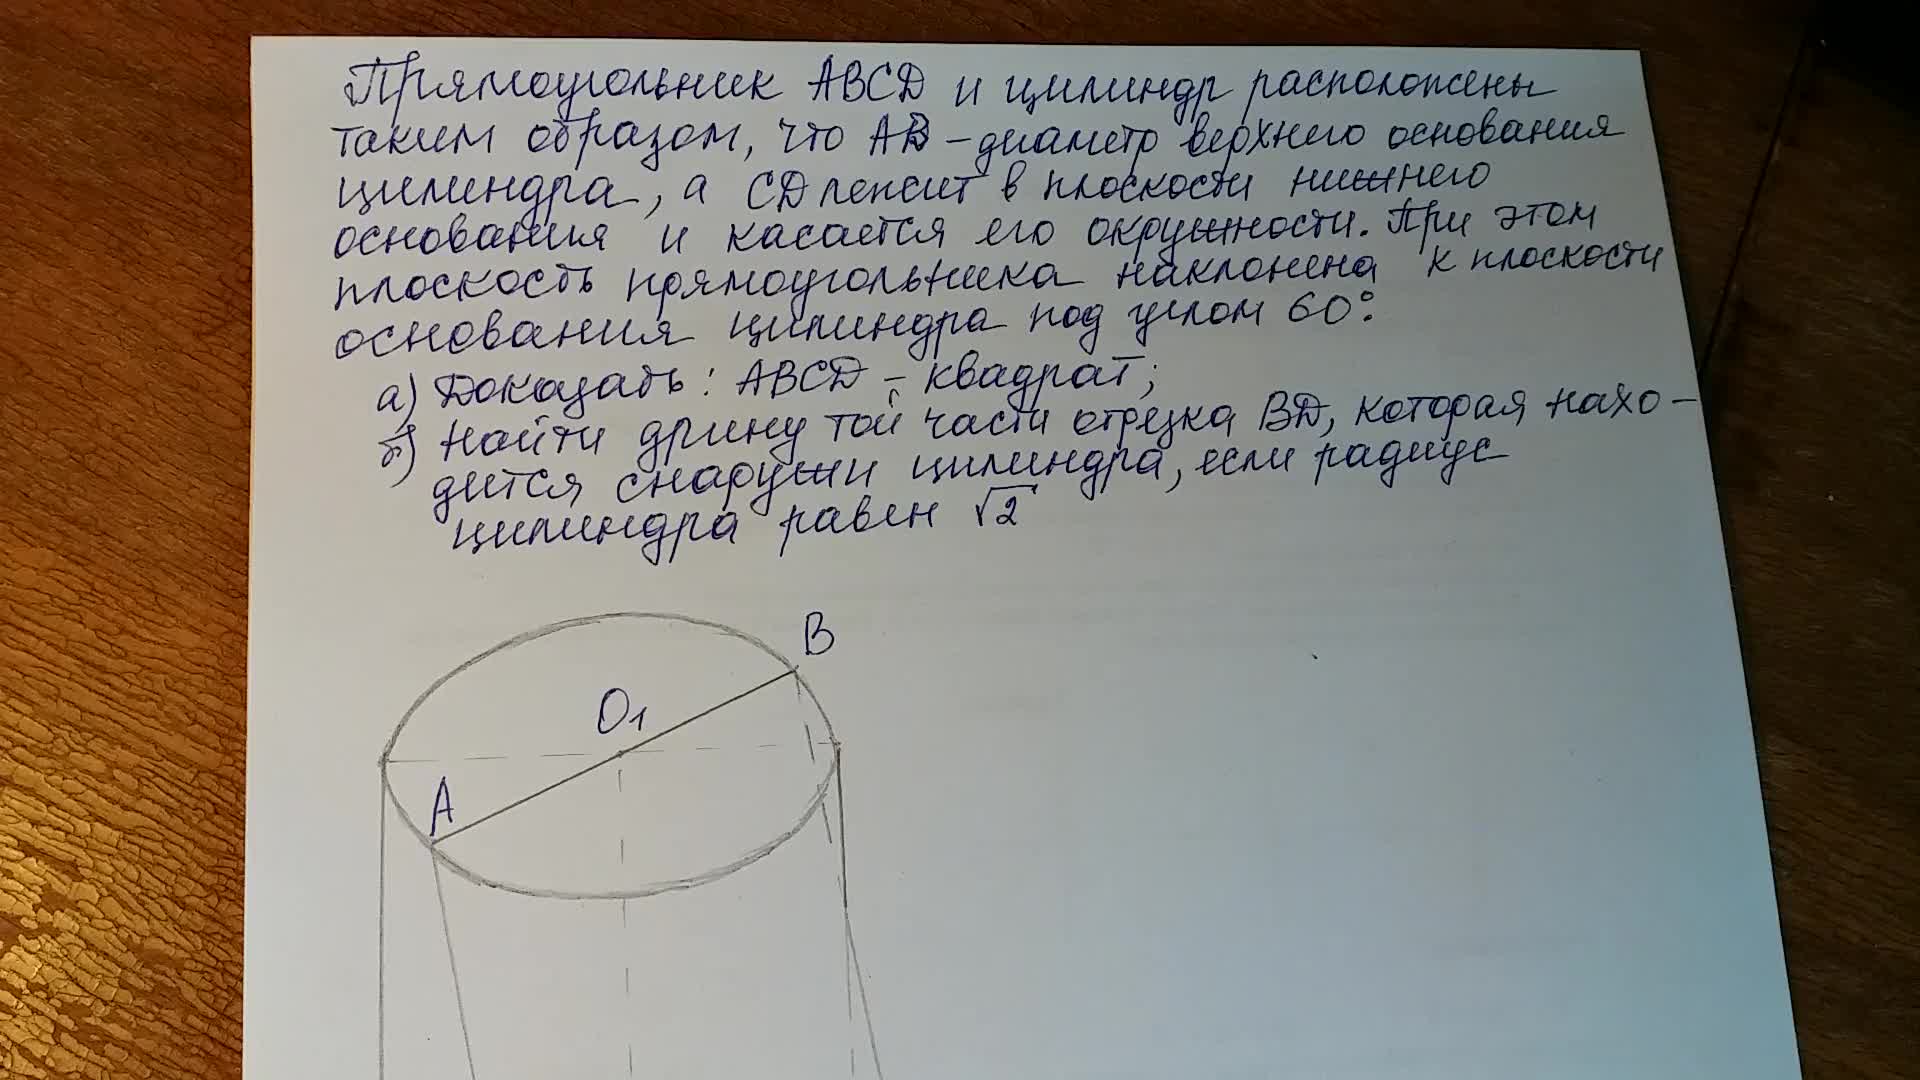 Прямоугольник ABCD и цилиндр расположены
таким образом, что AB – диаметр верхнего основания
цилиндра, а CD лежит в плоскости нижнего
основания и касается его окружности. При этом
плоскость прямоугольника наклонена к плоскости
основания цилиндра под углом 60°.
а) Доказать: ABCD – квадрат;
б) Найти длину той части отрезка BD, которая нахо-
дится снаружи цилиндра, если радиус
цилиндра равен √2
B
O₁
A